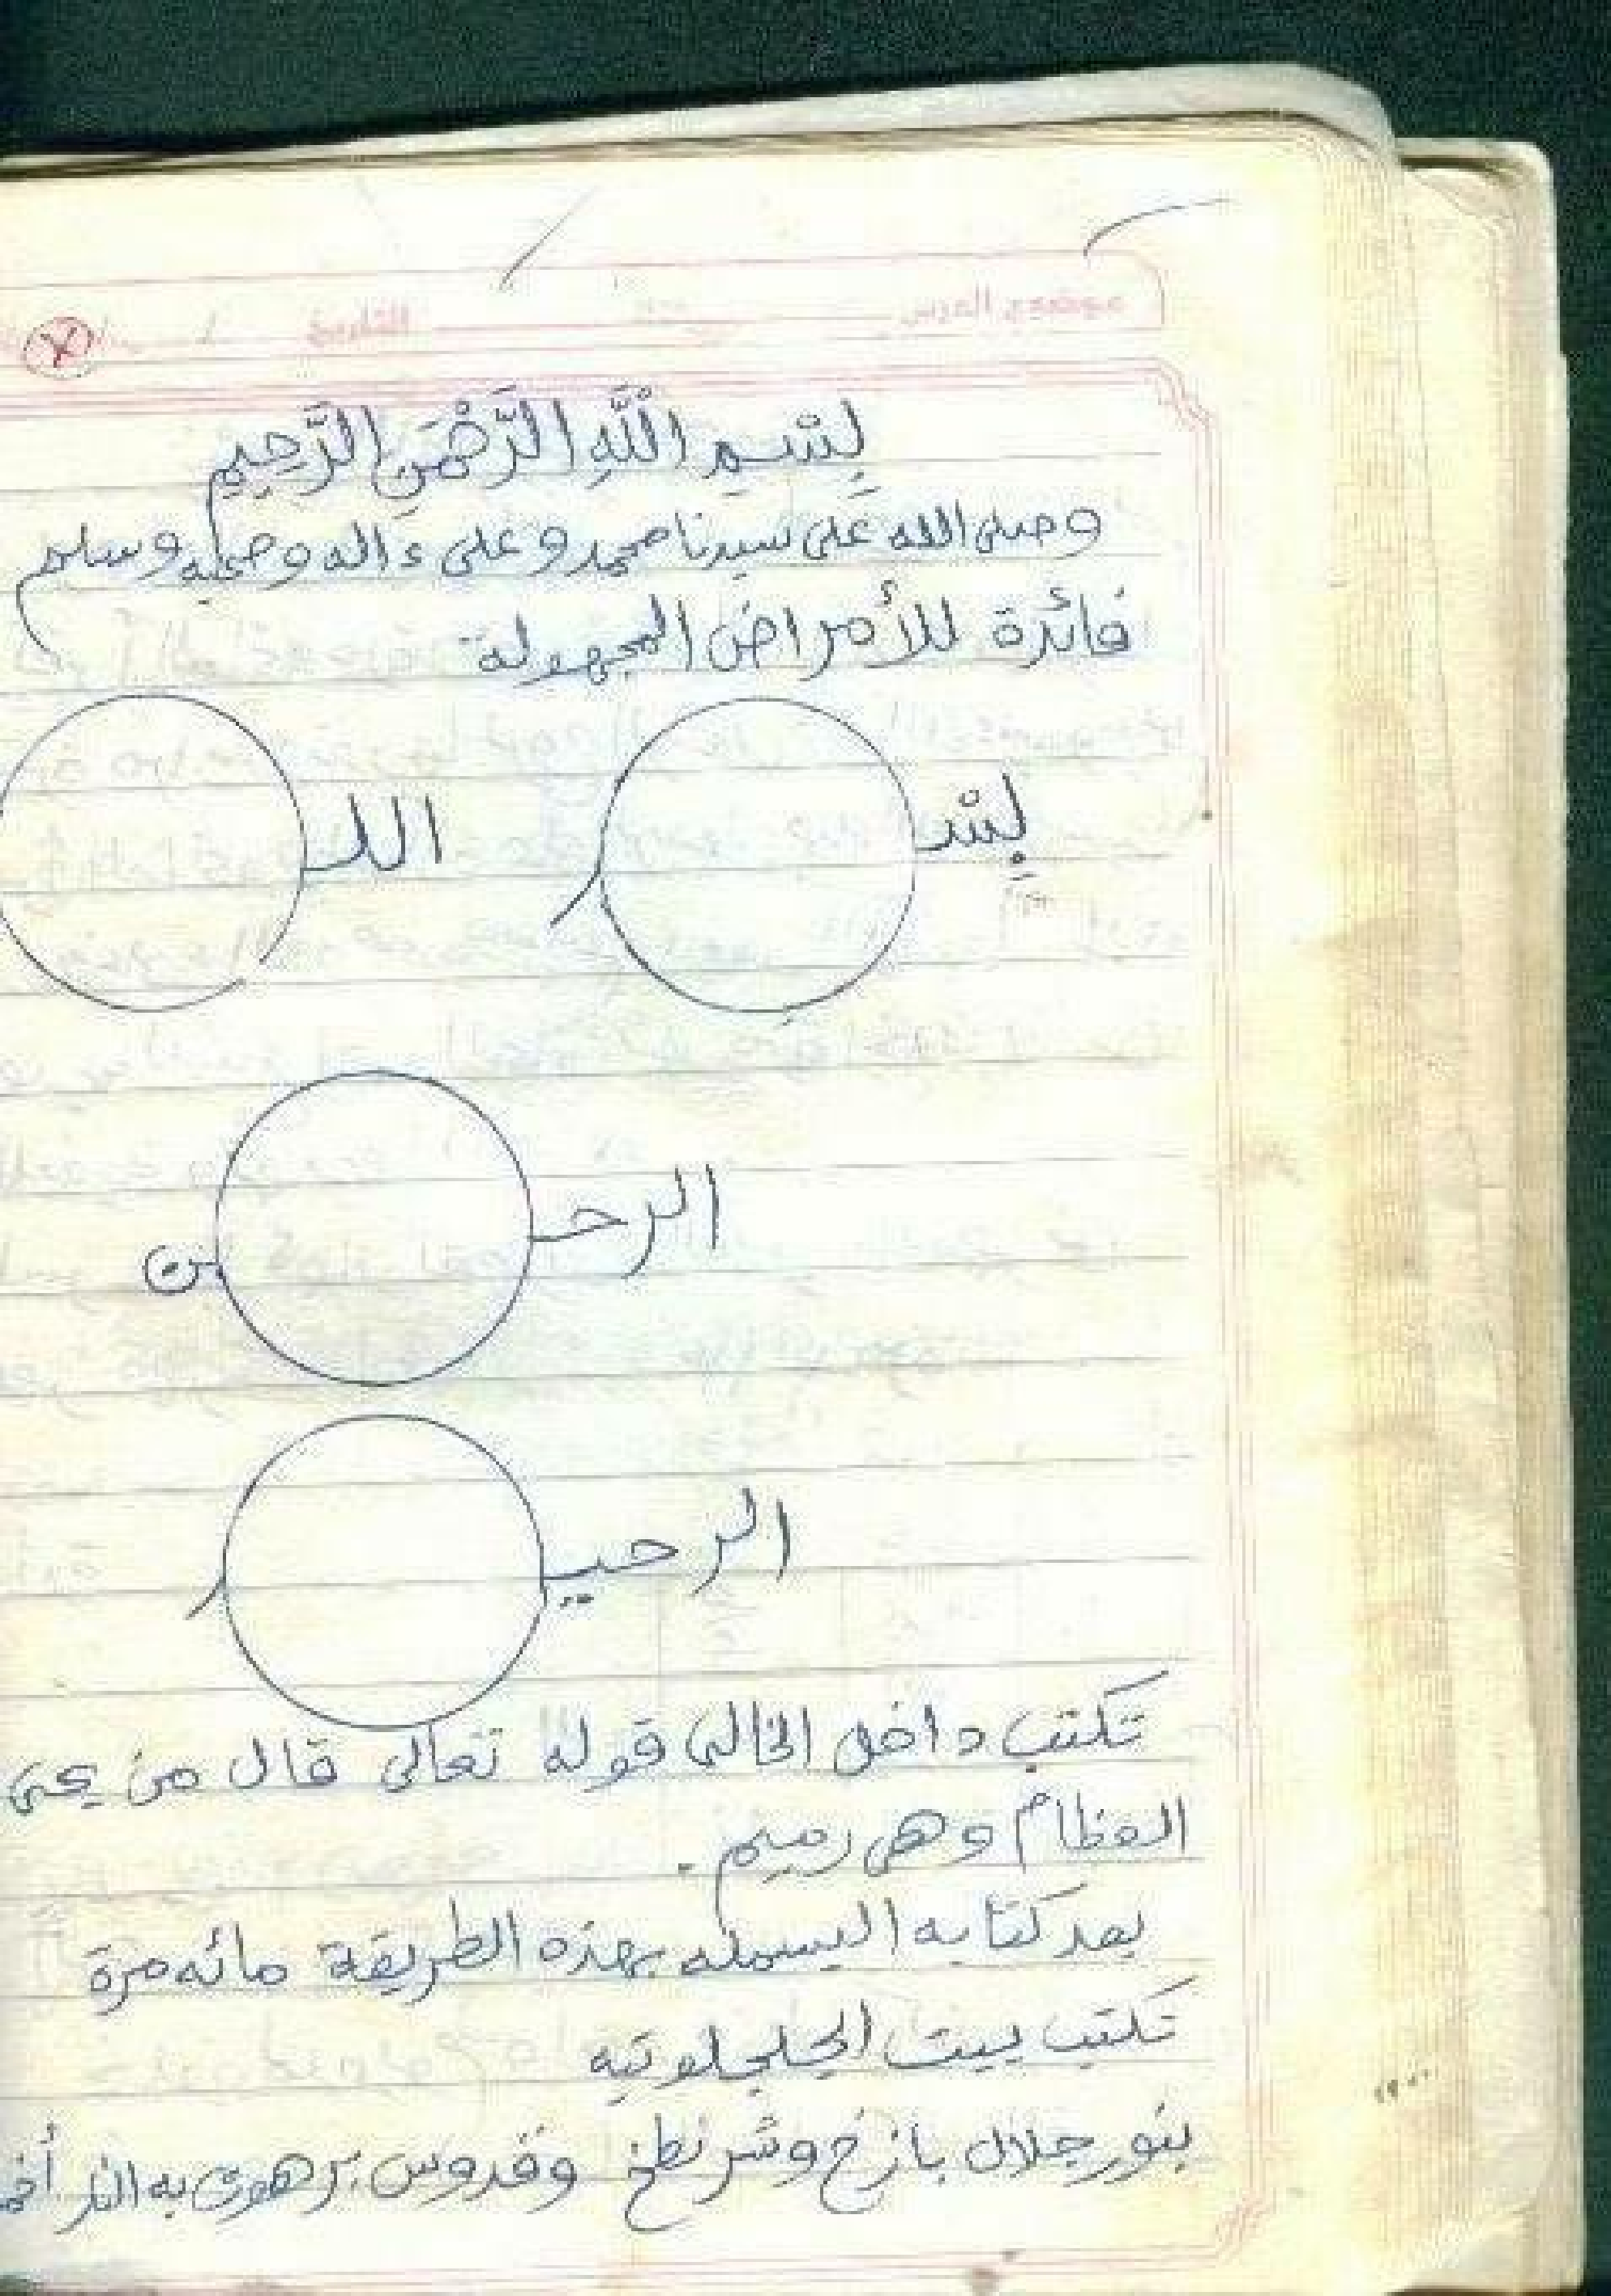 موضوع الدرس التاريخ / /
بِسْمِ اللَّهِ الرَّحْمَنِ الرَّحِيمِ
وصلى الله على سيدنا محمد وعلى ءاله وصحبه وسلم
فائدة للأمراض المجهولة
بِسْـ ـم اللـ
الرحـ ـن
الرحيـ ـم
تكتب داخل الخالى قوله تعالى قال من يحى
العظام وهى رميم .
بعد كتابه البسمله بهذه الطريقة مائه مرة
تكتب بيت الجلجلوتيه
بنور جلال بازخ وشرنطخ وقدوس برهوت به النار أخمد